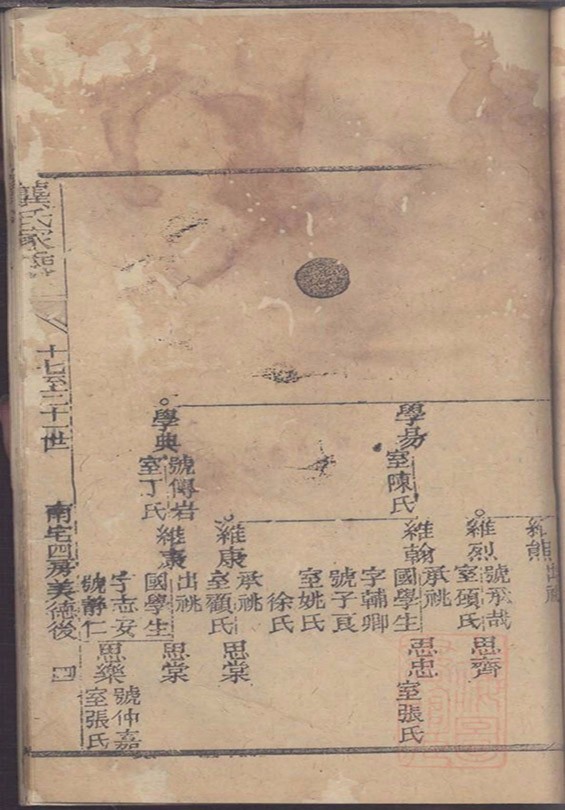 維熊
出祧
維烈
號承哉
室碩氏
思齊
學易
室陳氏
維翰
承祧
國學生
字輔卿
號子良
室姚氏
徐氏
思忠
室張氏
維康
承祧
室顧氏
思棠
學典
號傳岩
室丁氏
維康
出祧
國學生
字志安
號靜仁
思棠
思樂
號仲嘉
室張氏
龔氏家譜
十七至二十一世
南宅四房美德後
四